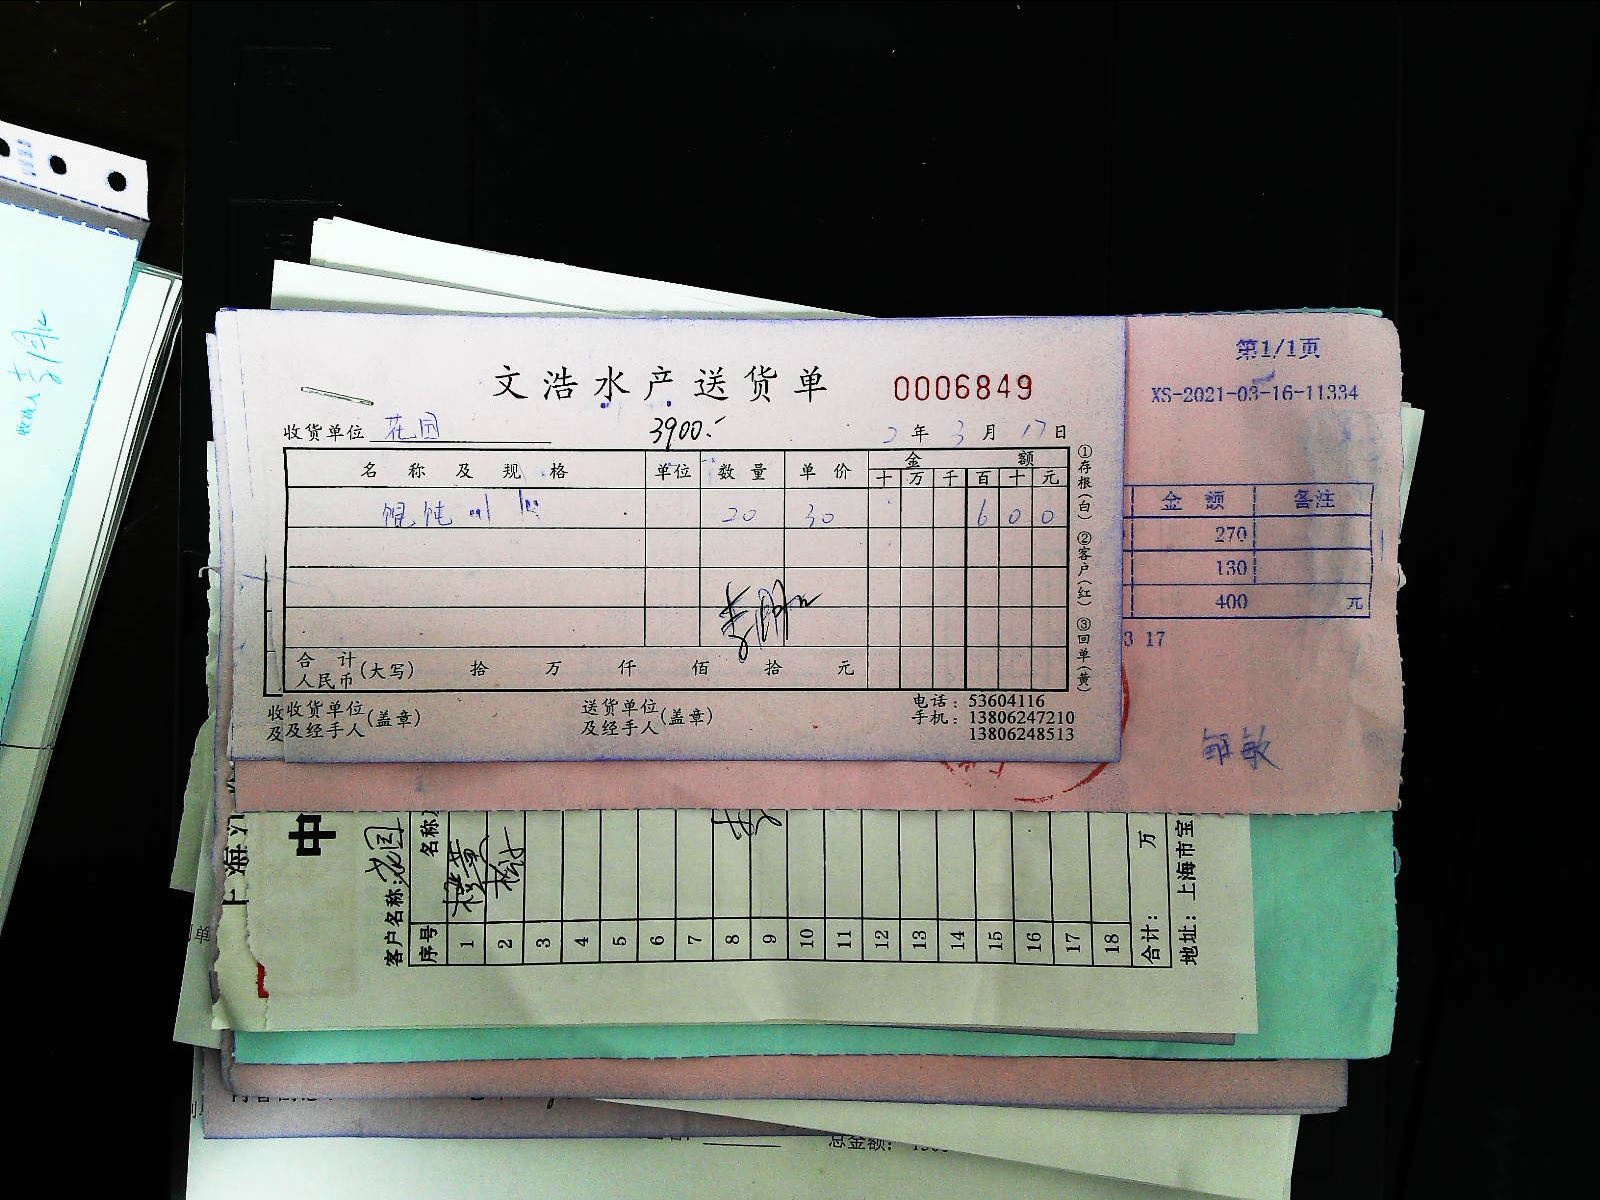 文浩水产送货单 0006849
收货单位 花园 3900.- 2年3月17日
名称及规格 单位 数量 单价 金额
十 万 千 百 十 元
馄饨 20 30 6 0 0
合计人民币(大写) 拾 万 仟 佰 拾 元
收货单位及经手人(盖章) 送货单位及经手人(盖章) 电话：53604116
手机：13806247210
13806248513
①存根(白) ②客户(红) ③回单(黄)
第1/1页
XS-2021-03-16-11334
金额 备注
270
130
400 元
3 17
邹敏
中
客户名称：花园
序号 名称
1
2
3
4
5
6
7
8
9
10
11
12
13
14
15
16
17
18
合计： 万
地址：上海市宝
上海
单
总金额：
收货人